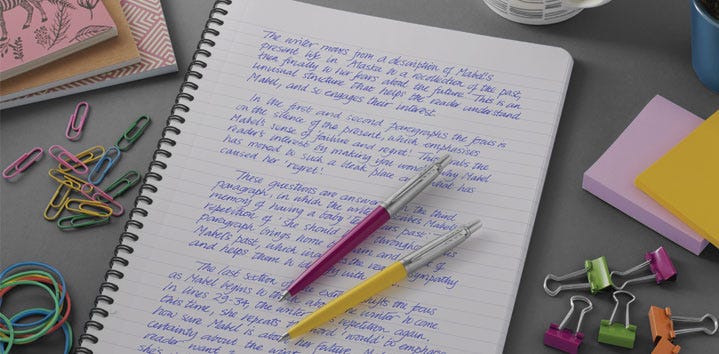 The writer moves from a description of Mabel's
present life in Alaska to a recollection of the past,
then finally to her fears about the future. This is an
unusual structure that helps the reader understand
Mabel, and so engages their interest.
In the first and second paragraphs the focus is
on the silence of the present, which emphasises
Mabel's sense of failure and regret. This
reader's interest by making you why Mabel
has moved to such a bleak place and has
caused her 'regret'.
These questions are the third
paragraph, in which the Mabel's
memory of having a baby past. The
repetition of 'She should throughout this
paragraph brings home
Mabel's past, which the sympathy
and helps them to with
The last section the focus
as Mabel begins to
In lines 29-34, the winter to come.
this time, she repeats repetition again,
how sure Mabel is about 'would' to emphasise
certainty about the her future.
reader want
She's